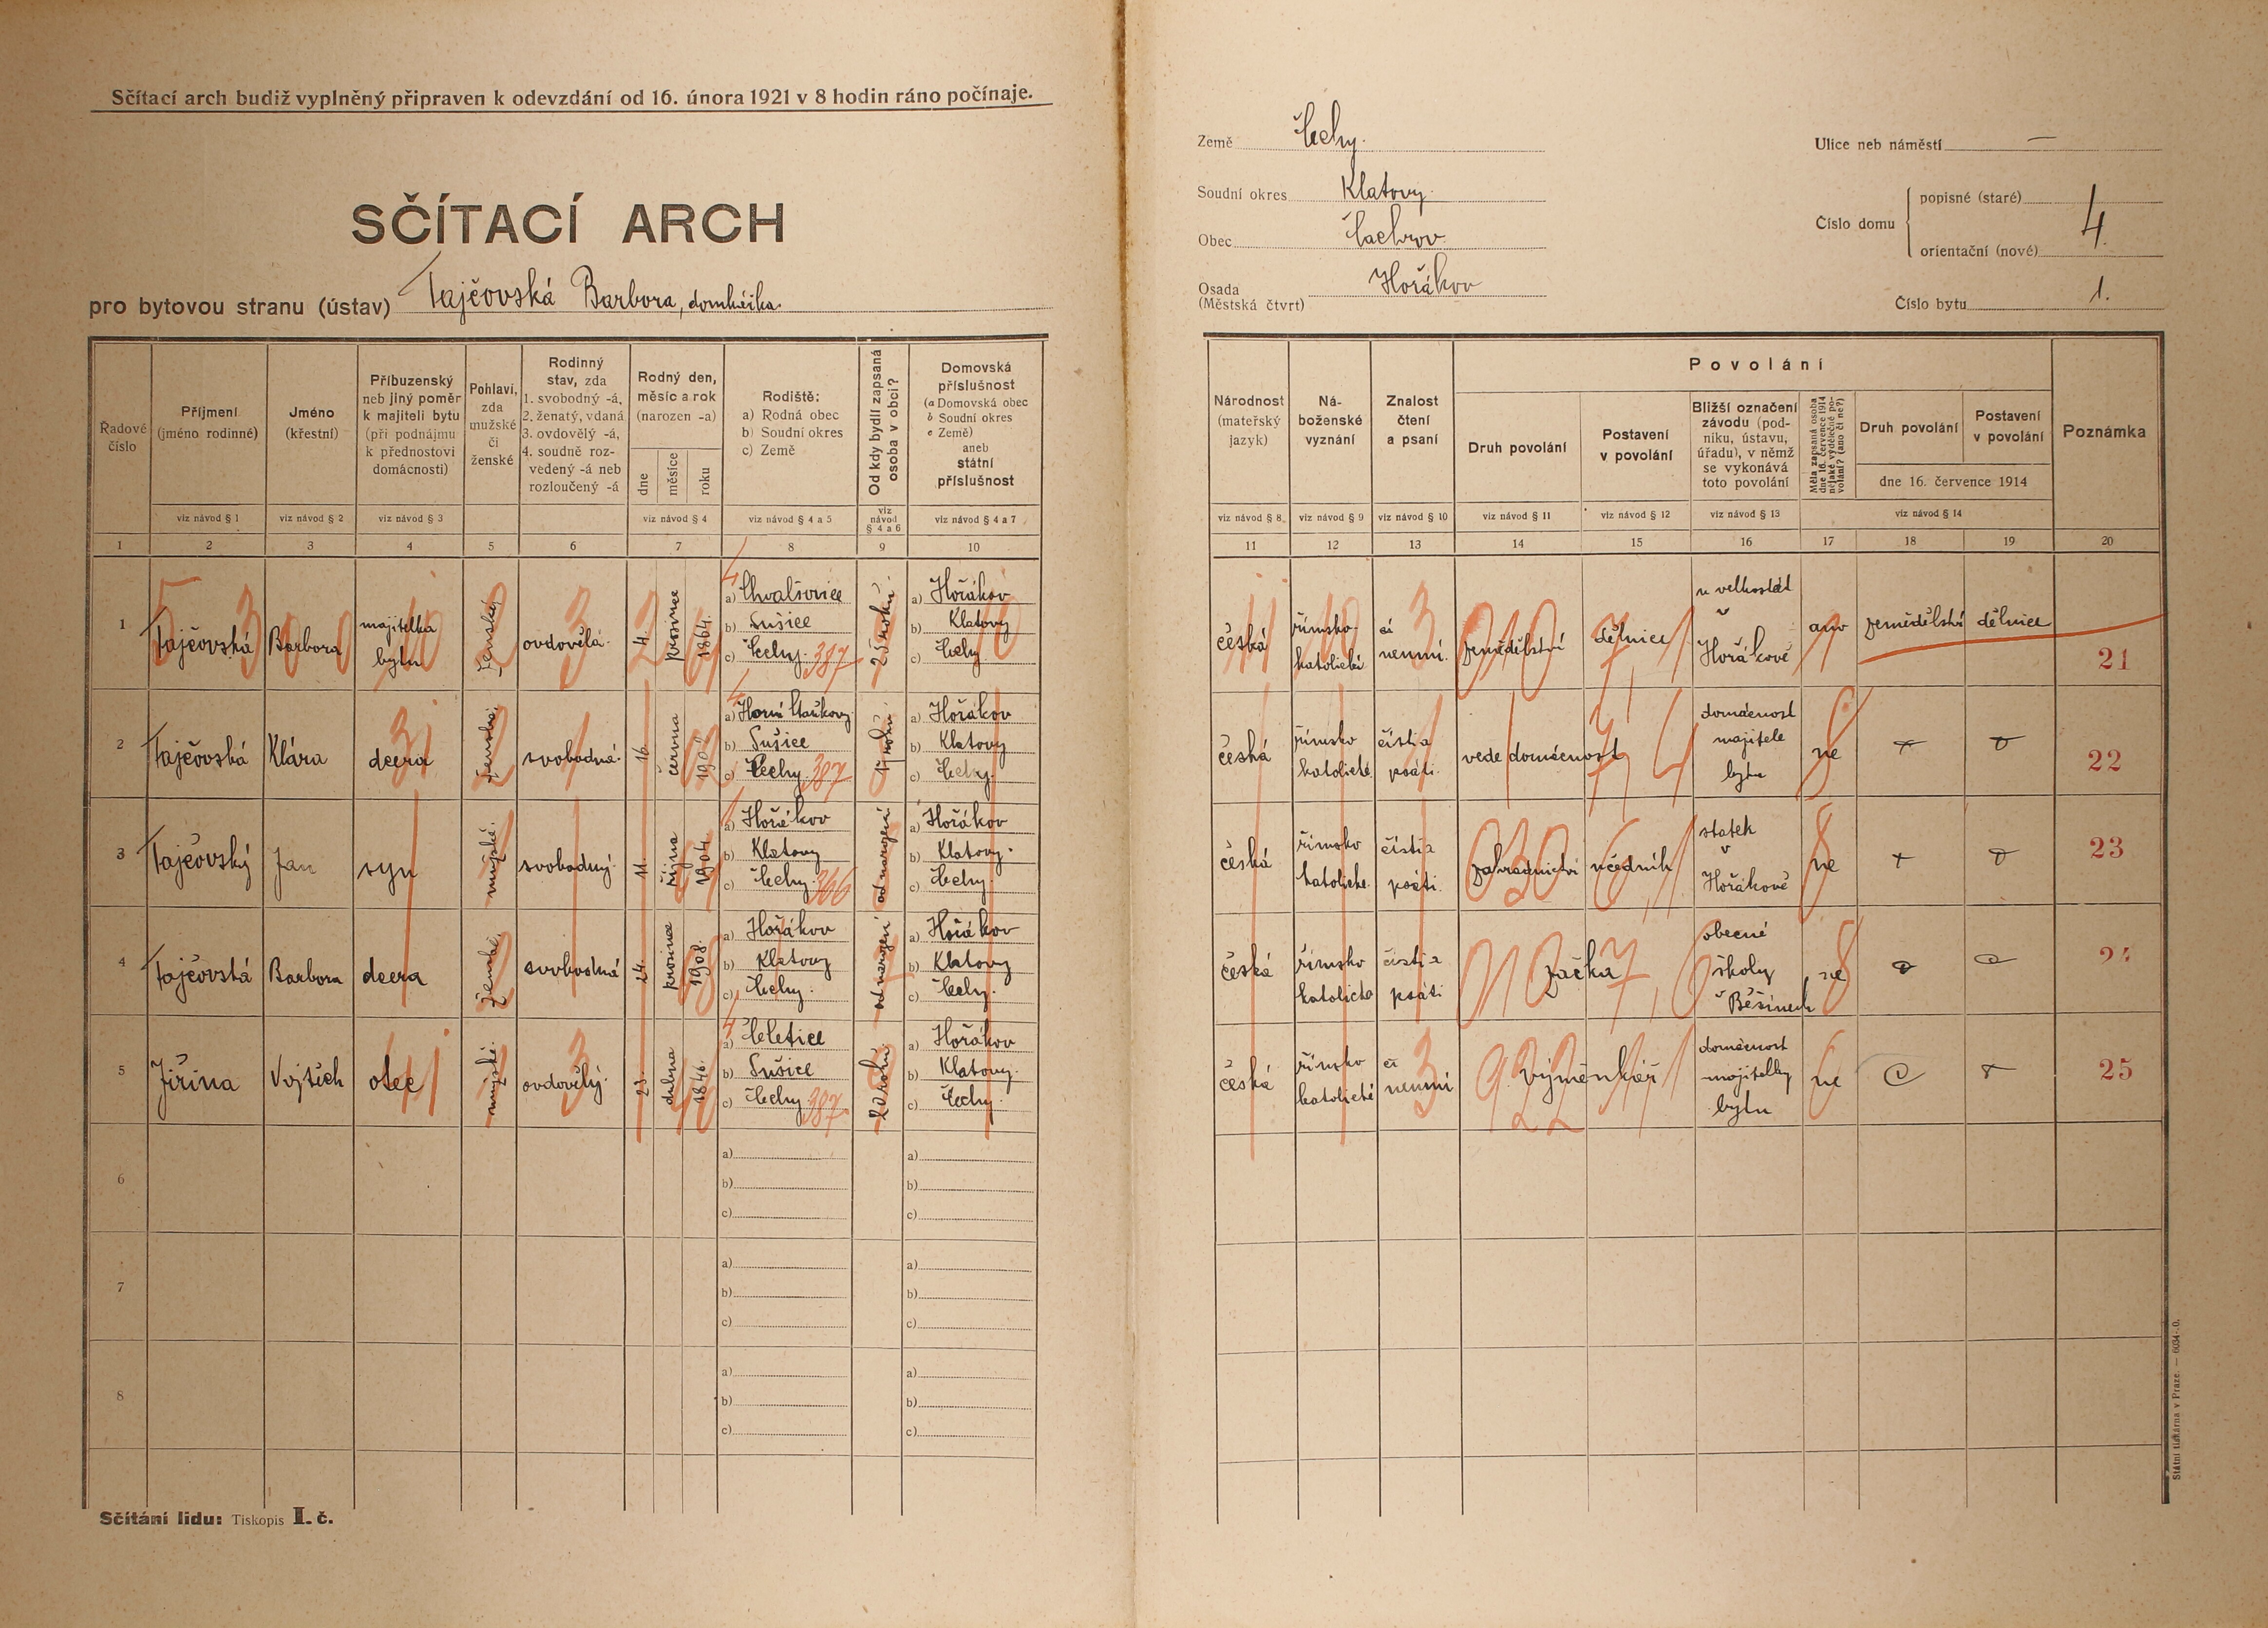 Sčítací arch budiž vyplněný připraven k odevzdání od 16. února 1921 v 8 hodin ráno počínaje.
SČÍTACÍ ARCH
pro bytovou stranu (ústav) Tajčovská Barbora, domkářka.
Země Čechy.
Soudní okres Klatovy.
Obec Čachrov.
Osada Hořákov
(Městská čtvrť)
Ulice neb náměstí —
Číslo domu
popisné (staré) 4.
orientační (nové)
Číslo bytu 1.
Řadové číslo
Příjmení (jméno rodinné)
Jméno (křestní)
Příbuzenský neb jiný poměr k majiteli bytu (při podnájmu k přednostovi domácnosti)
Pohlaví, zda mužské či ženské
Rodinný stav, zda
1. svobodný -á,
2. ženatý, vdaná
3. ovdovělý -á,
4. soudně rozvedený -á neb rozloučený -á
Rodný den, měsíc a rok (narozen -a)
dne měsíce roku
Rodiště:
a) Rodná obec
b) Soudní okres
c) Země
Od kdy bydlí zapsaná osoba v obci?
Domovská příslušnost
(a Domovská obec
b Soudní okres
c Země)
aneb
státní příslušnost
viz návod § 1 viz návod § 2 viz návod § 3 viz návod § 4 viz návod § 4 a 5 viz návod § 4 a 6 viz návod § 4 a 7
1 2 3 4 5 6 7 8 9 10
1 Tajčovská Barbora majitelka bytu ženské ovdovělá. 4. prosince 1864.
a) Chvalšovice
b) Sušice
c) Čechy. 387
25 roků.
a) Hořákov
b) Klatovy
c) Čechy
2 Tajčovská Klára dcera ženské svobodná. 16. června 1902
a) Horní Staňkovy
b) Sušice
c) Čechy. 387
a) Hořákov
b) Klatovy
c) Čechy.
3 Tajčovský Jan syn mužské. svobodný. 11. října 1904.
a) Hořákov
b) Klatovy
c) Čechy. 366
od narození
a) Hořákov
b) Klatovy.
c) Čechy.
4 Tajčovská Barbora dcera ženské. svobodná 24. prosince 1908.
a) Hořákov
b) Klatovy
c) Čechy.
od narození
a) Hořákov
b) Klatovy
c) Čechy.
5 Jiřina Vojtěch otec mužské. ovdovělý. 23. dubna 1846.
a) Čeletice
b) Sušice
c) Čechy 387
20 roků.
a) Hořákov
b) Klatovy.
c) Čechy.
6
a)
b)
c)
a)
b)
c)
7
a)
b)
c)
a)
b)
c)
8
a)
b)
c)
a)
b)
c)
Sčítání lidu: Tiskopis I. č.
Národnost (mateřský jazyk)
Náboženské vyznání
Znalost čtení a psaní
Povolání
Druh povolání
Postavení v povolání
Bližší označení závodu (podniku, ústavu, úřadu), v němž se vykonává toto povolání
Měla zapsaná osoba dne 16. července 1914 nějaké výdělečné povolání? (ano či ne?)
Druh povolání
Postavení v povolání
dne 16. července 1914
Poznámka
viz návod § 8. viz návod § 9 viz návod § 10 viz návod § 11 viz návod § 12 viz návod § 13 viz návod § 14
11 12 13 14 15 16 17 18 19 20
česká římsko-katolické neumí. zemědělství dělnice v Hořákově ano zemědělství dělnice 21
česká římsko katolické. čísti a psáti. vede domácnost domácnost majitele bytu ne 22
česká římsko katolické. čísti a psáti. zahradnictví učedník statek v Hořákově ne 23
česká římsko katolické čísti a psáti žačka obecné školy v Běšinech ne 24
česká římsko katolické neumí výměnkář domácnost majitelky bytu ne 25
Státní tiskárna v Praze. — 6034-.0.